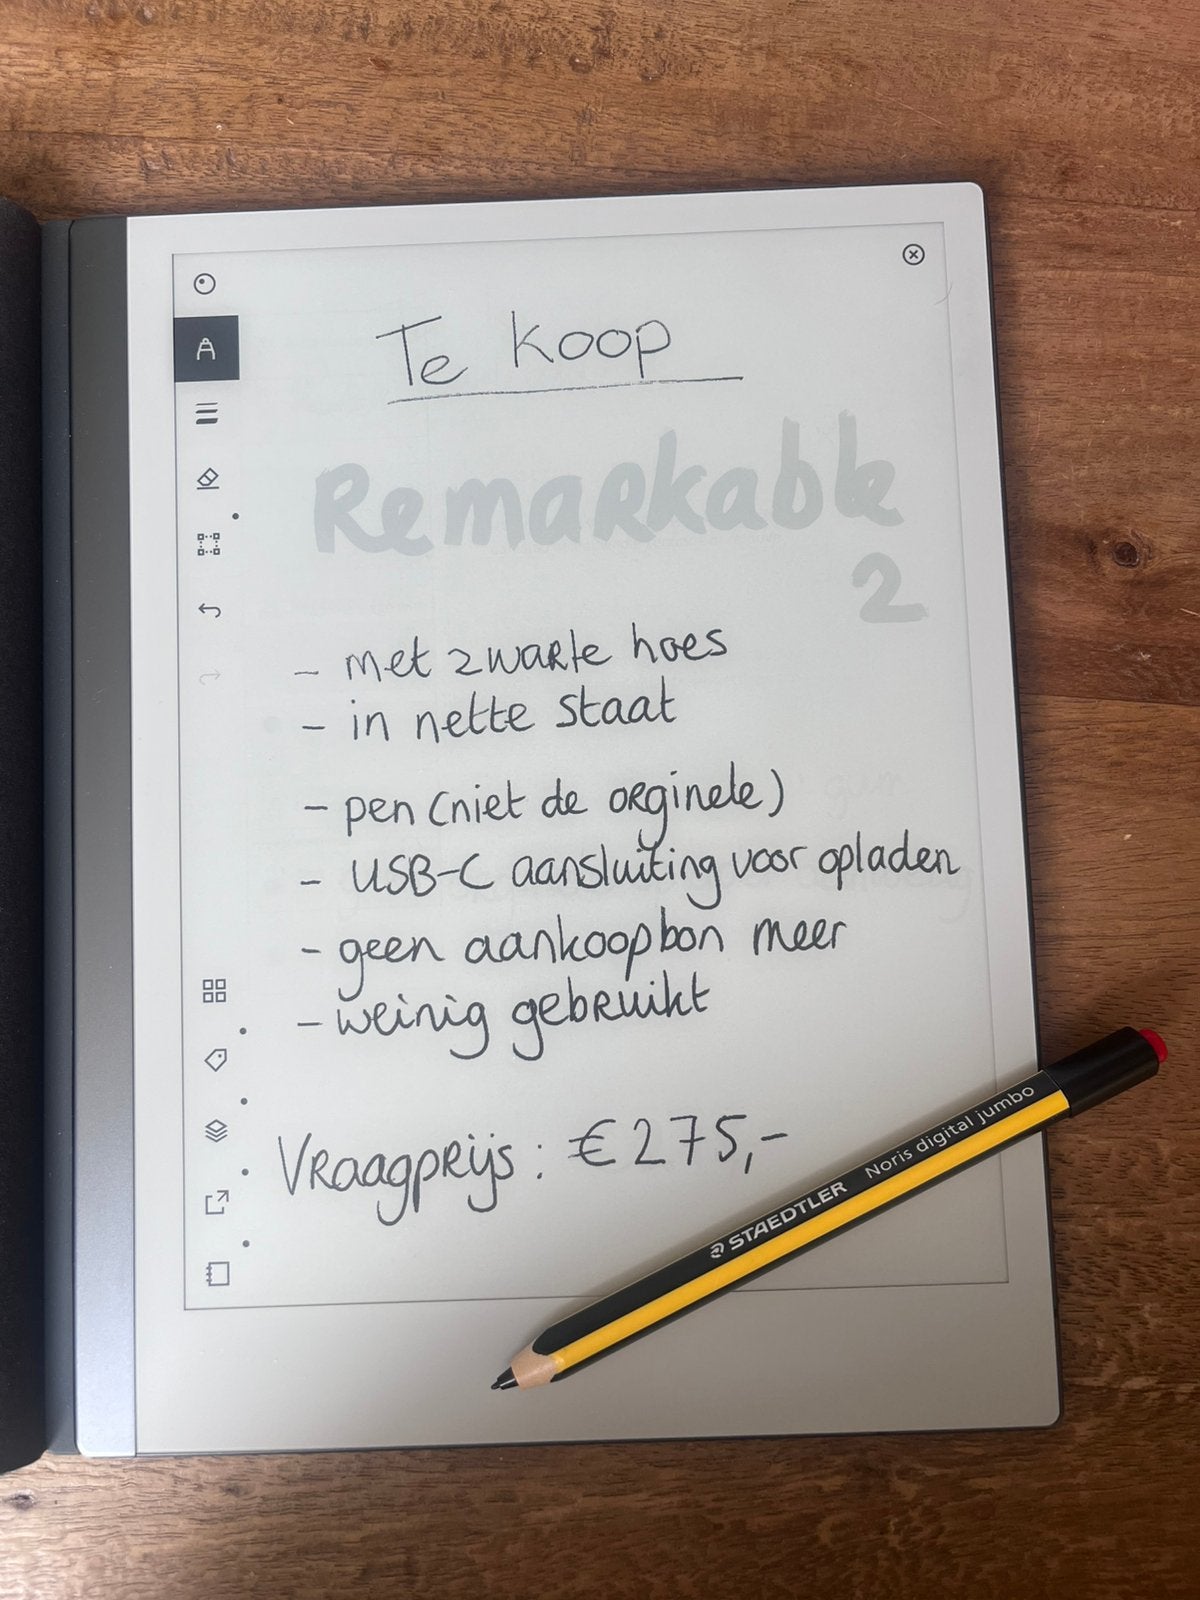 Te koop
Remarkable
2
- met zwarte hoes
- in nette staat
- pen (niet de orginele)
- USB-C aansluiting voor opladen
- geen aankoopbon meer
- weinig gebruikt
Vraagprijs: €275,-
STAEDTLER Noris digital jumbo